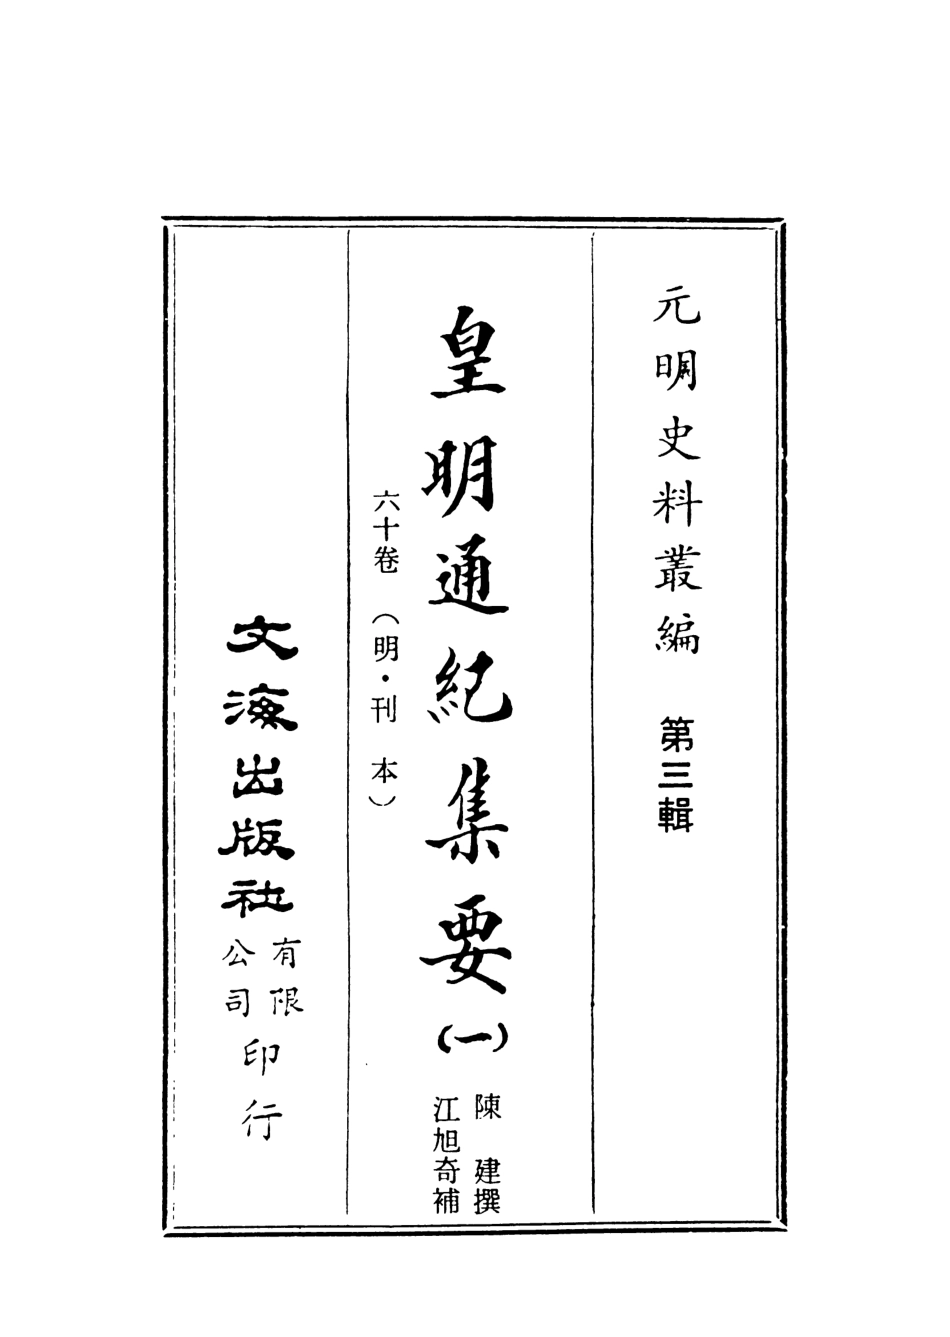 元明史料叢編　第三輯
皇明通紀集要(一)
陳　建撰
江旭奇補
六十卷　（明·刊　本）
文海出版社
有限
公司
印行